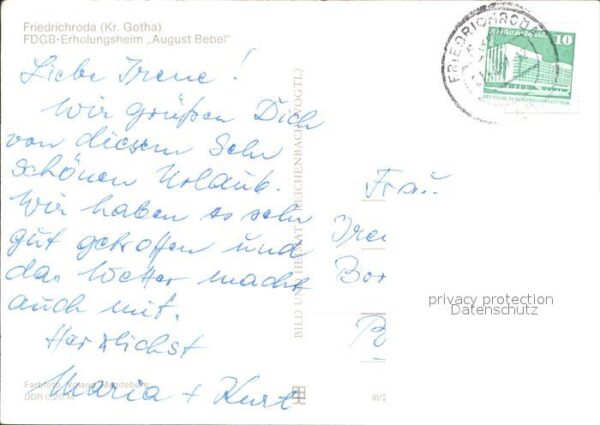 Friedrichroda (Kr. Gotha)
FDGB-Erholungsheim „August Bebel"
Liebe Irene!
Wir grüßen Dich
von diesem sehr
schönen Urlaub.
Wir haben es sehr
gut getroffen und
das Wetter macht
auch mit.
Herzlichst
Maria + Kurt
Farbfoto: Voland, Magdeburg
DDR 0,20 M
BILD UND HEIMAT REICHENBACH (VOGTL)
III/2
FRIEDRICHRODA
10
Frau
Iren
Bor
privacy protection
Datenschutz